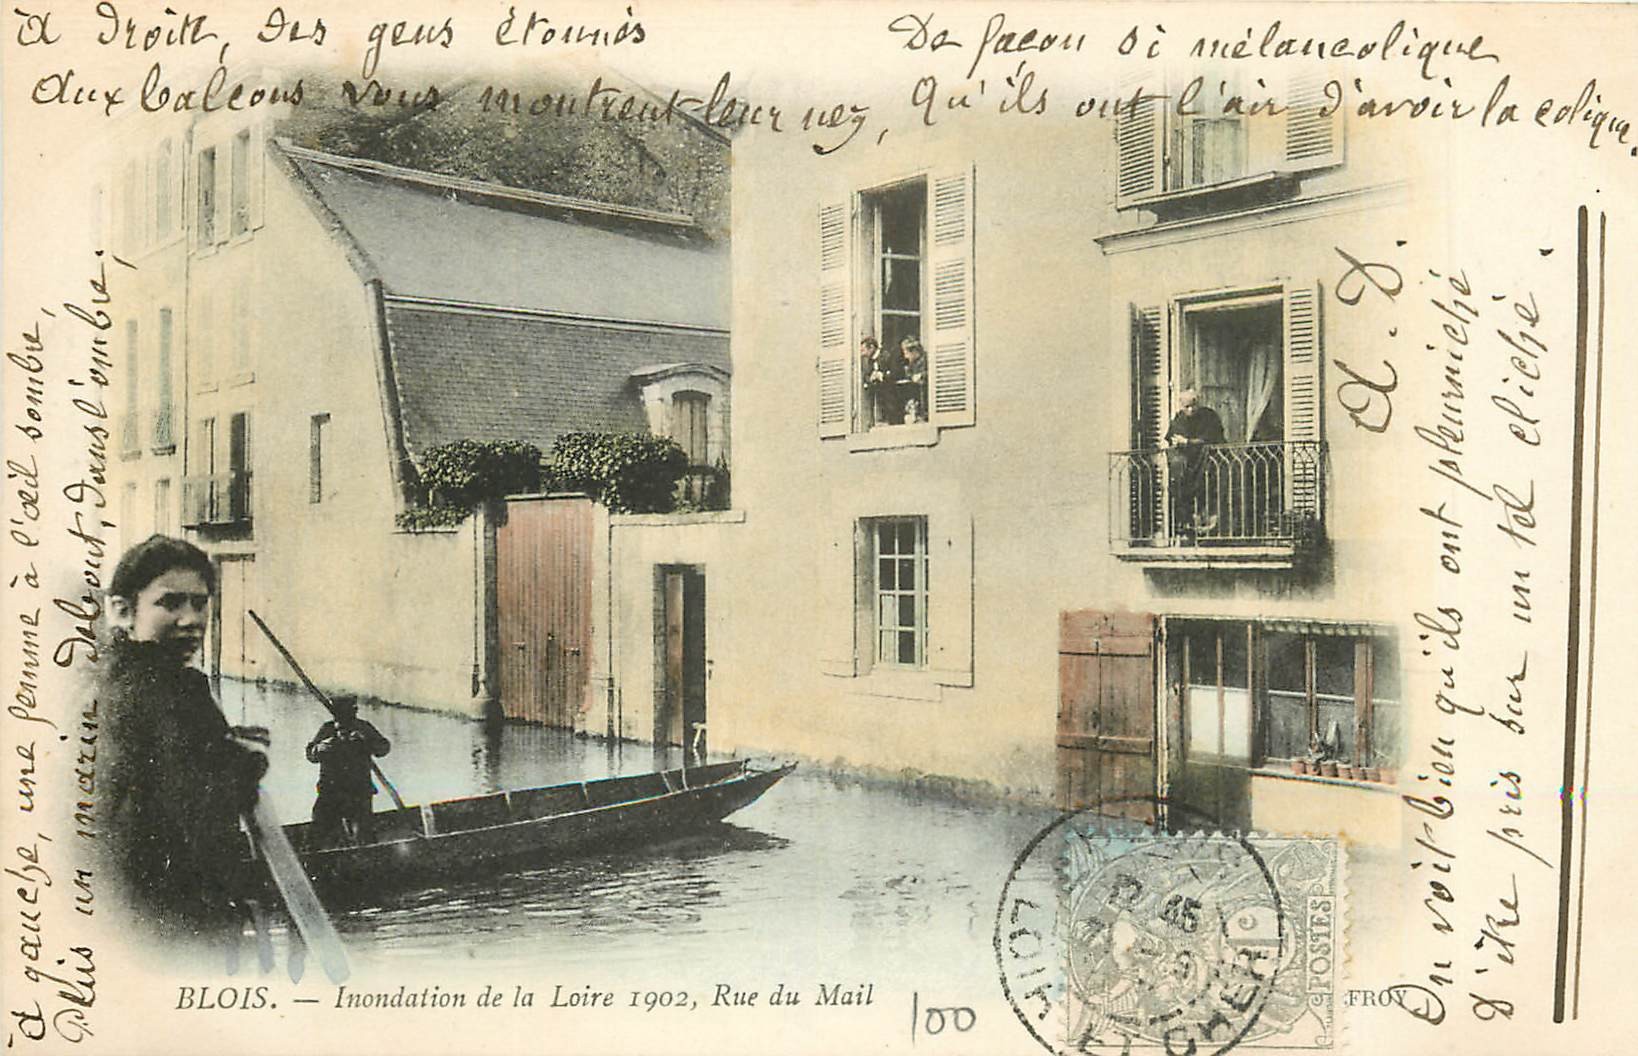 à gauche, une femme à l'œil sombre,
Puis un marin debout, dans l'ombre.,
à droite, des gens étonnés
aux balcons vous montrent leur nez,
De façon si mélancolique
Qu'ils ont l'air d'avoir la colique.
On voit bien qu'ils ont pleurniché
D'être pris sur un tel cliché.
A. D.
BLOIS. — Inondation de la Loire 1902, Rue du Mail
100
LOIR ET CHER
1c
POSTES